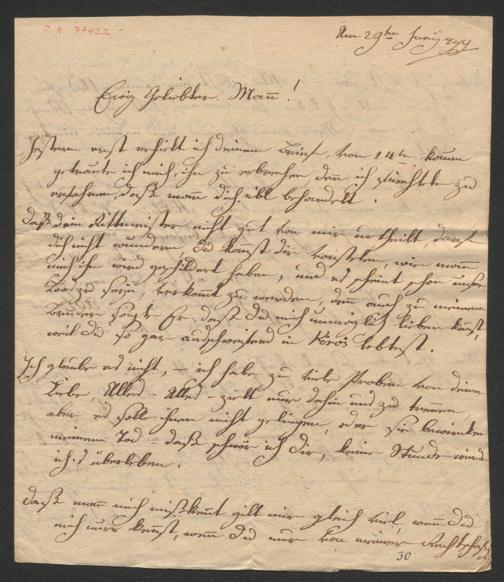 J. N. 77421
Am 29ten Juny 799
Ewig Geliebter Mann!
Gestern erst erhielt ich deinen Brief, vom 24ten, kaum
getraute ich mich, ihn zu erbrechen denn ich fürchtete zu
erfahren, daß man dich übl behandelt.
Daß dein Rittmeister nicht gut von mir urtheilt, darf
dich nicht wundern, du kanst dir vorstelen, wie man
mich ihm wird geschildert haben, und es scheint schon unser
Loos zu sein, verkant zu werden, denn auch zu meinem
Bruder sagte Er, daß du mich unmöglich lieben könst,
weil du so gar ausschweifend in Körös lebtest.
Ich glaube es nicht, – ich habe zu viele Proben von deiner
Liebe, Alles – Alles – zielt nur dahin uns zu trennen,
aber es soll ihnen nicht gelingen, oder sie bewirken
meinem Tod – daß schwör ich dir, keine Stunde würde
ich's überleben.
Daß man mich mißkent gilt mir gleich viel, wenn du
mich nur kennst, wenn du nur von meiner Rechtschaf
30